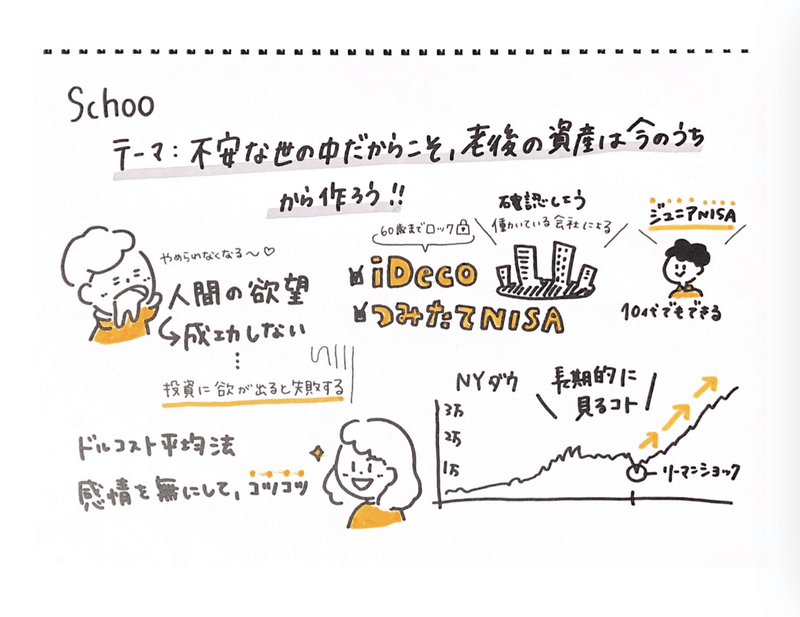 Schoo
テーマ：不安な世の中だからこそ、老後の資産は今のうち
から作ろう!!
やめられなくなる〜♡
人間の欲望
↳成功しない
⋮
投資に欲が出ると失敗する
60歳までロック
iDeco
つみたてNISA
確認しよう
働いている会社による
ジュニアNISA
10代でもできる
ドルコスト平均法
感情を無にして、コツコツ
NYダウ
長期的に
見るコト
3万
2万
1万
リーマンショック